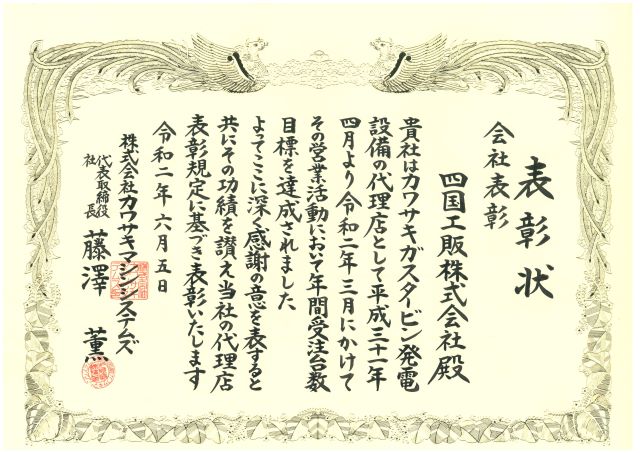 表彰状
会社表彰
四国工販株式会社殿
貴社はカワサキガスタービン発電
設備の代理店として平成三十一年
四月より令和二年三月にかけて
その営業活動において年間受注台数
目標を達成されました
よってここに深く感謝の意を表すると
共にその功績を讃え当社の代理店
表彰規定に基づき表彰いたします
令和二年六月五日
株式会社カワサキマシンシステムズ
代表取締役
社長
藤澤 薫